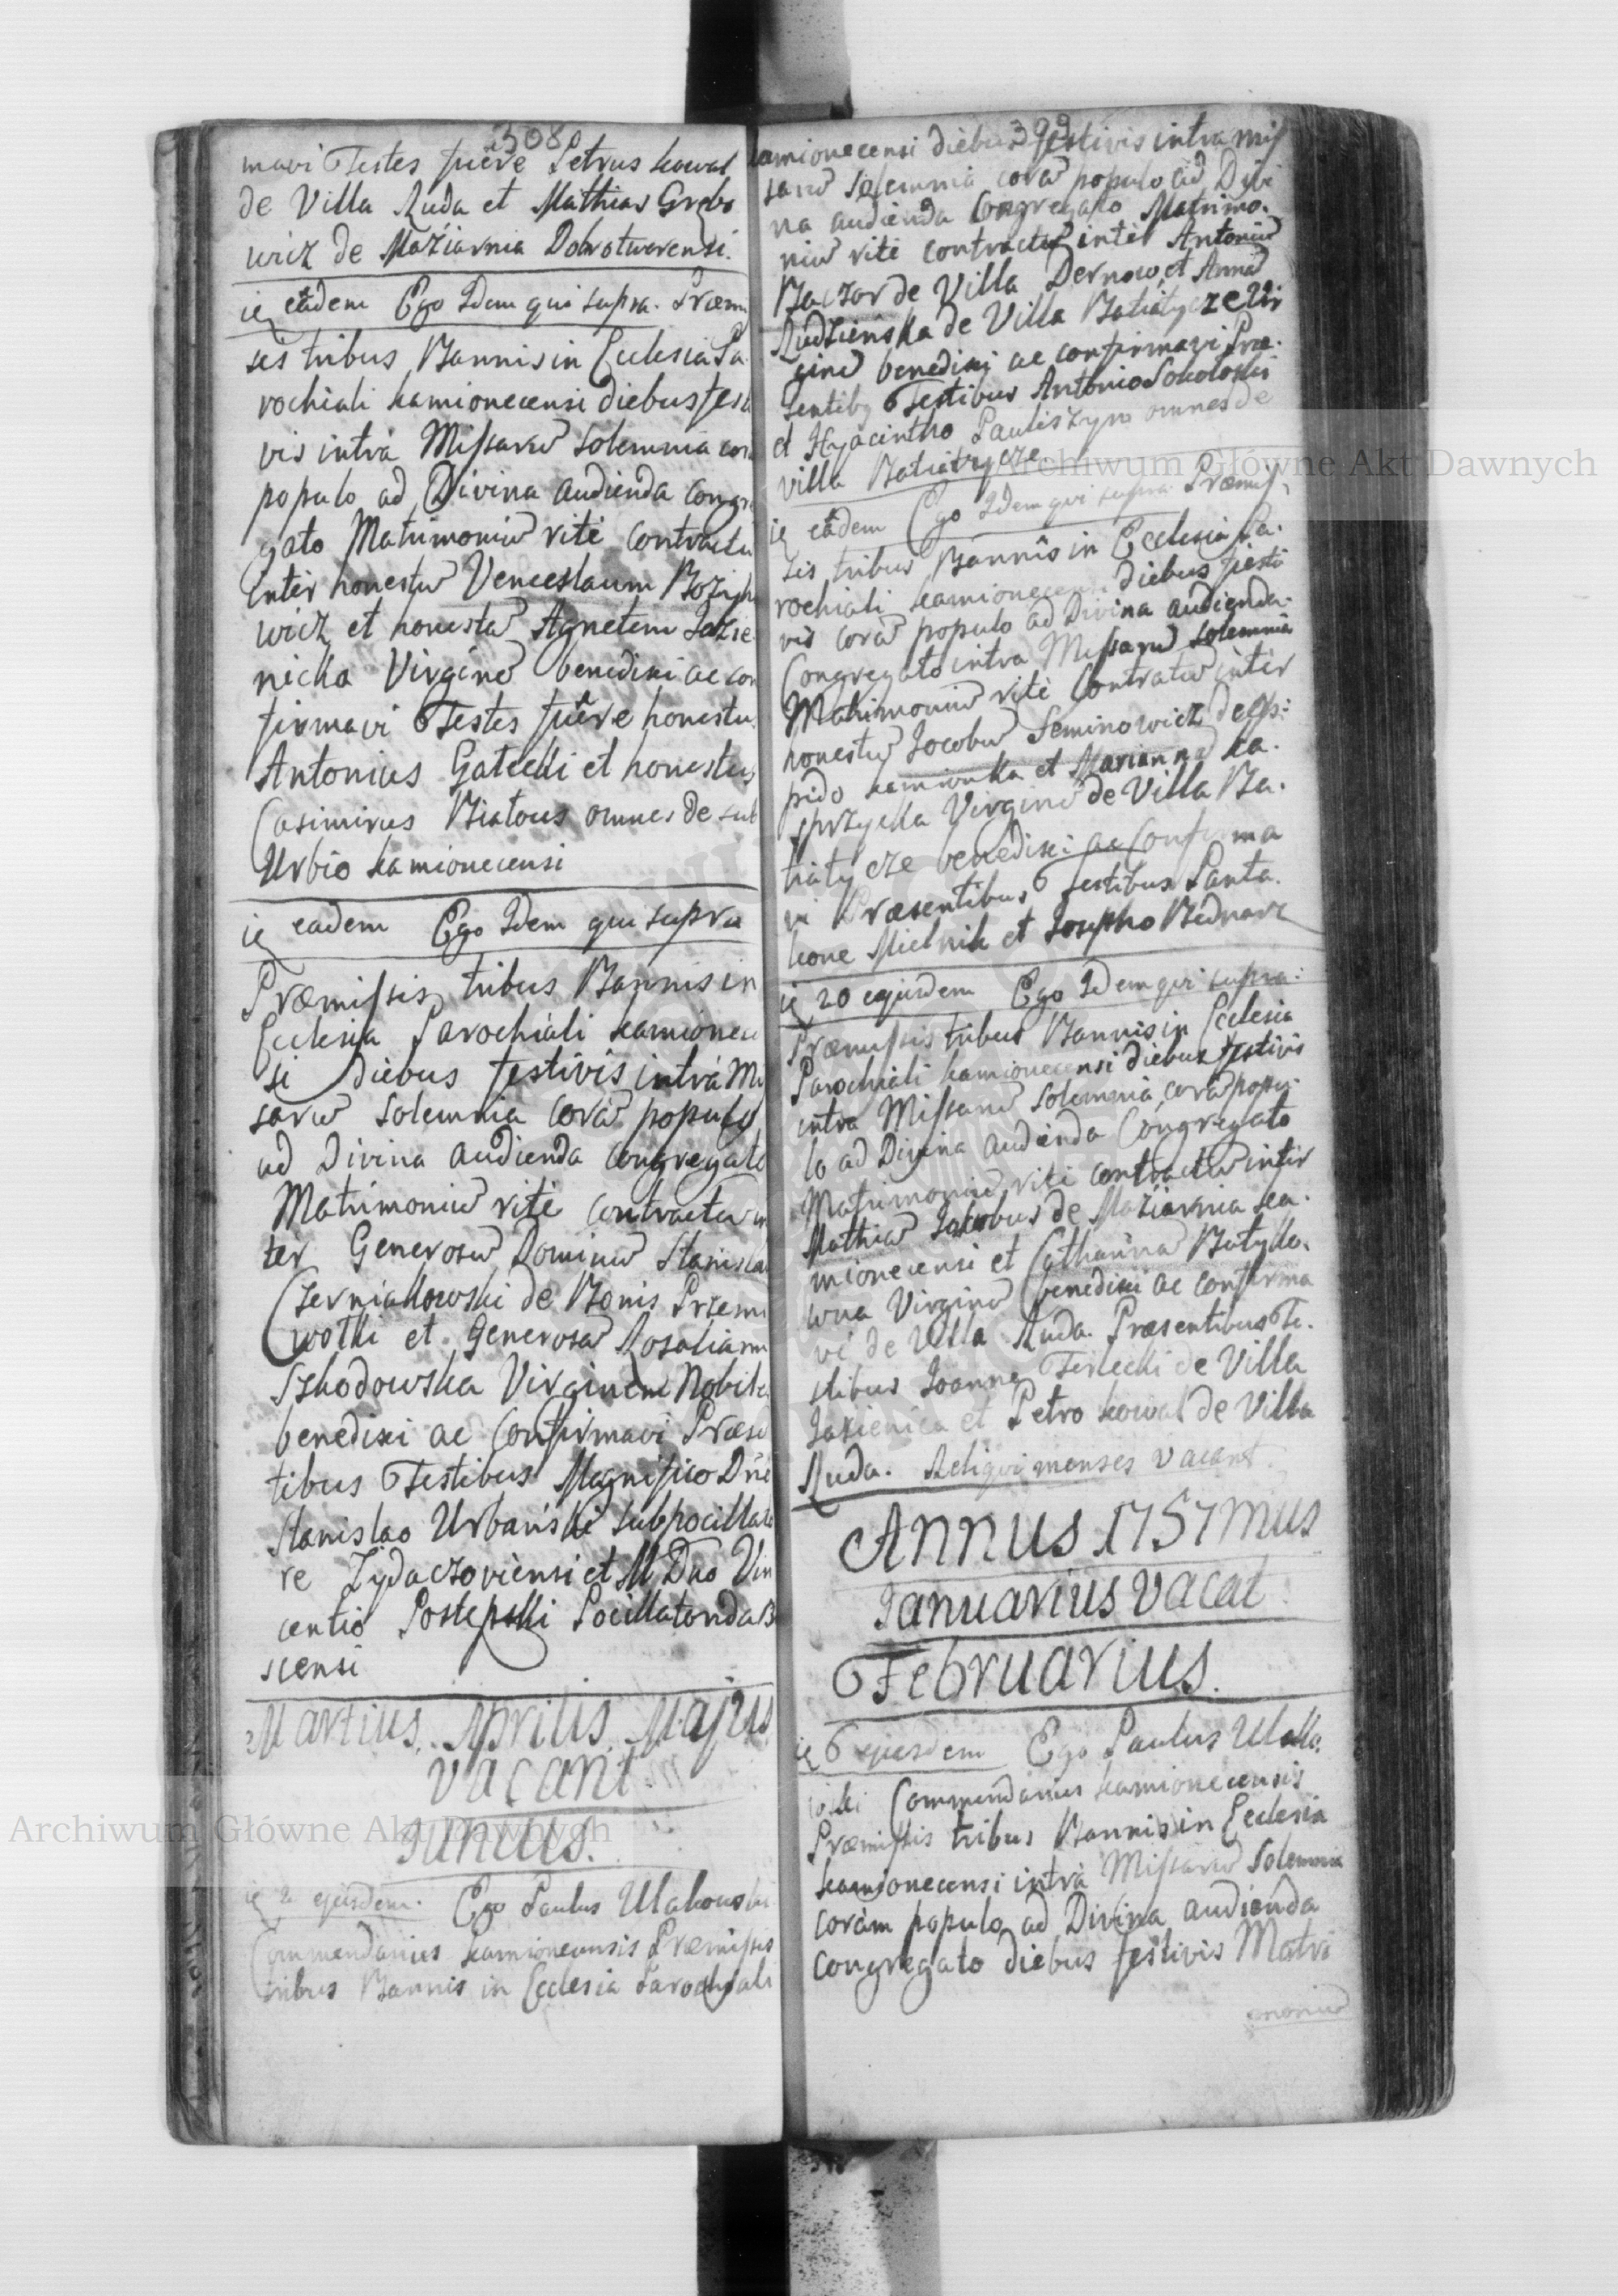 308
mavi Testes fuere Petrus Kowal
de Villa Ruda et Mathias Grebo
wicz de Maziarnia Dobrotwerensi.
ie eadem Ego Idem qui supra. Præmi
sis tribus Bannis in Ecclesia Pa
rochiali Kamionecensi diebus festi
vis intra Missarū solemnia cora
populo ad Divina audienda congre
gato Matrimoniū rite contractū
Inter honestū Venceslaum
wicz et honestā Agnetem Jazie
nicka Virginē benedixi ac con
firmavi Testes fuêre honestus
Antonius Gatecki et honestus
Casimirus Białous omnes de sub
Urbio Kamionecensi
ie eadem Ego Idem qui supra
Præmissis tribus Bannis in
Ecclesia Parochiali Kamionecen
si diebus festivis intra Mis
sarū solemnia corā populo
ad Divina audienda congregato
Matrimoniū rite contractū in
ter Generosū Dominū Stanislaū
Czerniakowski de Bonis Przemi
wotki et Generosā Rosaliam
Szkodowska Virginem Nobilē
benedixi ac Confirmavi Præsē
tibus Testibus Magnifico Dnō
Stanislao Urbański Subpocillato
re Zydaczoviensi et M Dno Vin
centio Postępski Pocillatorida
scensi
Martius, Aprilis, Majus
vacant
Junius.
ie 2 ejusdem. Ego Paulus Ulakowski
Commendarius Kamionecensis Præmissis
tribus Bannis in Ecclesia Parochiali
399
amionecensi diebus festivis intra Mis
sarū Solemnia corā populo ad Divi
na audienda Congregato Matrimo-
niū rite contractū inter Antoniū
Baczar de Villa Dernow, et Annā
Rudzieńska de Villa Batiatycze Vir
ginē benedixi ac confirmavi Præ-
sentibꝰ Testibus Antonio Sokołoski
et Hyacintho Pauliszyn omnes de
villa Batiatycze
ie eadem Ego Idem qui supra Præmis-
sis tribus Bannis in Ecclesia Pa-
rochiali Kamionecensi diebus festi
vis corā populo ad Divina audienda
Congregato intra Missarū solemnia
Matrimoniū rite Contratū inter
honestū Jacobū Seminowicz de Op-
pido Kamionka et Mariannā Ka-
sprzycka Virginē de Villa Ba-
tiatycze benedixi ac Confirma
vi Præsentibus Testibus Panta-
leone Mielnik et Josepho Bednarz
ie 20 ejusdem Ego Idem qui supra
Præmissis tribus Bannis in Ecclesia
Parochiali Kamionecensi diebus festivis
intra Missarū solemnia corā popu-
lo ad Divina audienda Congregato
Matrimoniū rite contractū inter
Mathiā Jakobus de Maziarnia Ka-
mionecensi et Catharinā Batyko-
wna Virginē benedixi ac confirma
vi de Villa Ruda. Præsentibus Te-
stibus Joanne Terlecki de Villa
Jazienica et Petro Kowal de Villa
Ruda. Reliqui menses vacant.
Annus 1757mus
Januarius vacat
Februarius.
ie 6 ejusdem Ego Paulus Ulako-
wski Commendarius Kamionecensis
Præmissis tribus Bannis in Ecclesia
Kamionecensi intra Missarū Solemnia
coram populo ad Divina audienda
congregato diebus festivis Matri
moniū
Archiwum Główne Akt Dawnych
Archiwum Główne Akt Dawnych